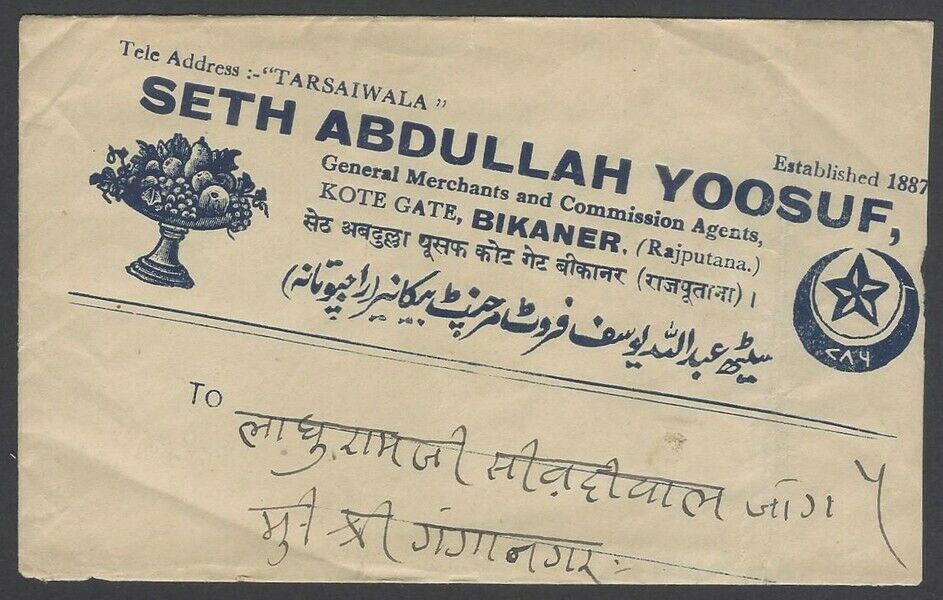 Tele Address :-"TARSAIWALA"
SETH ABDULLAH YOOSUF,
Established 1887
General Merchants and Commission Agents,
KOTE GATE, BIKANER. (Rajputana.)
सेठ अबदुल्ला यूसफ कोट गेट बीकानर (राजपूताना)।
سیٹھ عبداللہ یوسف فروٹ مرچنٹ بیکانیر (راجپوتانہ)
۷۸۶
TO
लाधुरामजी
श्री गंगानगर